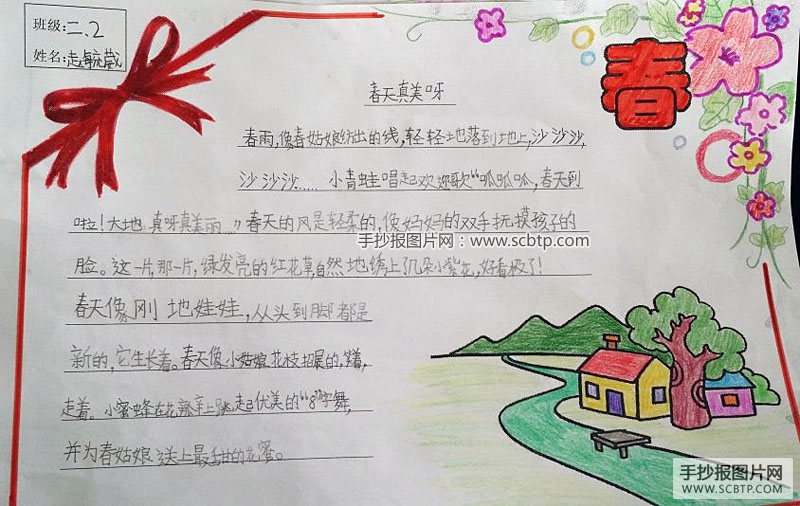 班级:二.2
姓名:
春
春天真美呀
春雨,像春姑娘纺出的线,轻轻地落到地上,沙沙沙,
沙沙沙……小青蛙唱起欢迎歌“呱呱呱,春天到
啦!大地真呀真美丽…”春天的风是轻柔的,像妈妈的双手抚摸孩子的
手抄报图片网:www.scbtp.com
脸。这一片,那一片,绿发亮的红花草,自然地绣上了几朵小紫花,好看极了!
春天像刚地娃娃,从头到脚都是
新的,它生长着。春天像小姑娘,花枝招展的,笑着,
走着。小蜜蜂在花瓣上跳起优美的“8”字舞,
并为春姑娘送上最甜的花蜜。
手抄报图片网
WWW.SCBTP.COM